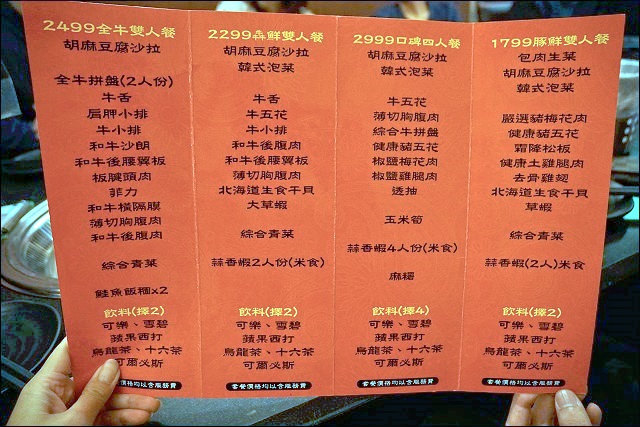 2499全牛雙人餐
胡麻豆腐沙拉
全牛拼盤(2人份)
牛舌
肩胛小排
牛小排
和牛沙朗
和牛後腰翼板
板腱頭肉
菲力
和牛橫隔膜
薄切胸腹肉
和牛後腹肉
綜合青菜
鮭魚飯糰x2
飲料(擇2)
可樂、雪碧
蘋果西打
烏龍茶、十六茶
可爾必斯
價格均以含服務費
2299犇鮮雙人餐
胡麻豆腐沙拉
韓式泡菜
牛舌
牛五花
牛小排
和牛後腹肉
和牛後腰翼板
薄切胸腹肉
北海道生食干貝
大草蝦
綜合青菜
蒜香蝦2人份(米食)
飲料(擇2)
可樂、雪碧
蘋果西打
烏龍茶、十六茶
可爾必斯
套餐價格均以含服務費
2999口碑四人餐
胡麻豆腐沙拉
韓式泡菜
牛五花
薄切胸腹肉
綜合牛拼盤
健康豬五花
椒鹽梅花肉
椒鹽雞腿肉
透抽
玉米筍
蒜香蝦4人份(米食)
麻糬
飲料(擇4)
可樂、雪碧
蘋果西打
烏龍茶、十六茶
可爾必斯
套餐價格均以含服務費
1799豚鮮雙人餐
包肉生菜
胡麻豆腐沙拉
韓式泡菜
嚴選豬梅花肉
健康豬五花
霜降松板
健康土雞腿肉
去骨雞翅
北海道生食干貝
草蝦
綜合青菜
蒜香蝦(2人)米食
飲料(擇2)
可樂、雪碧
蘋果西打
烏龍茶、十六茶
可爾必斯
套餐價格均以含服務費